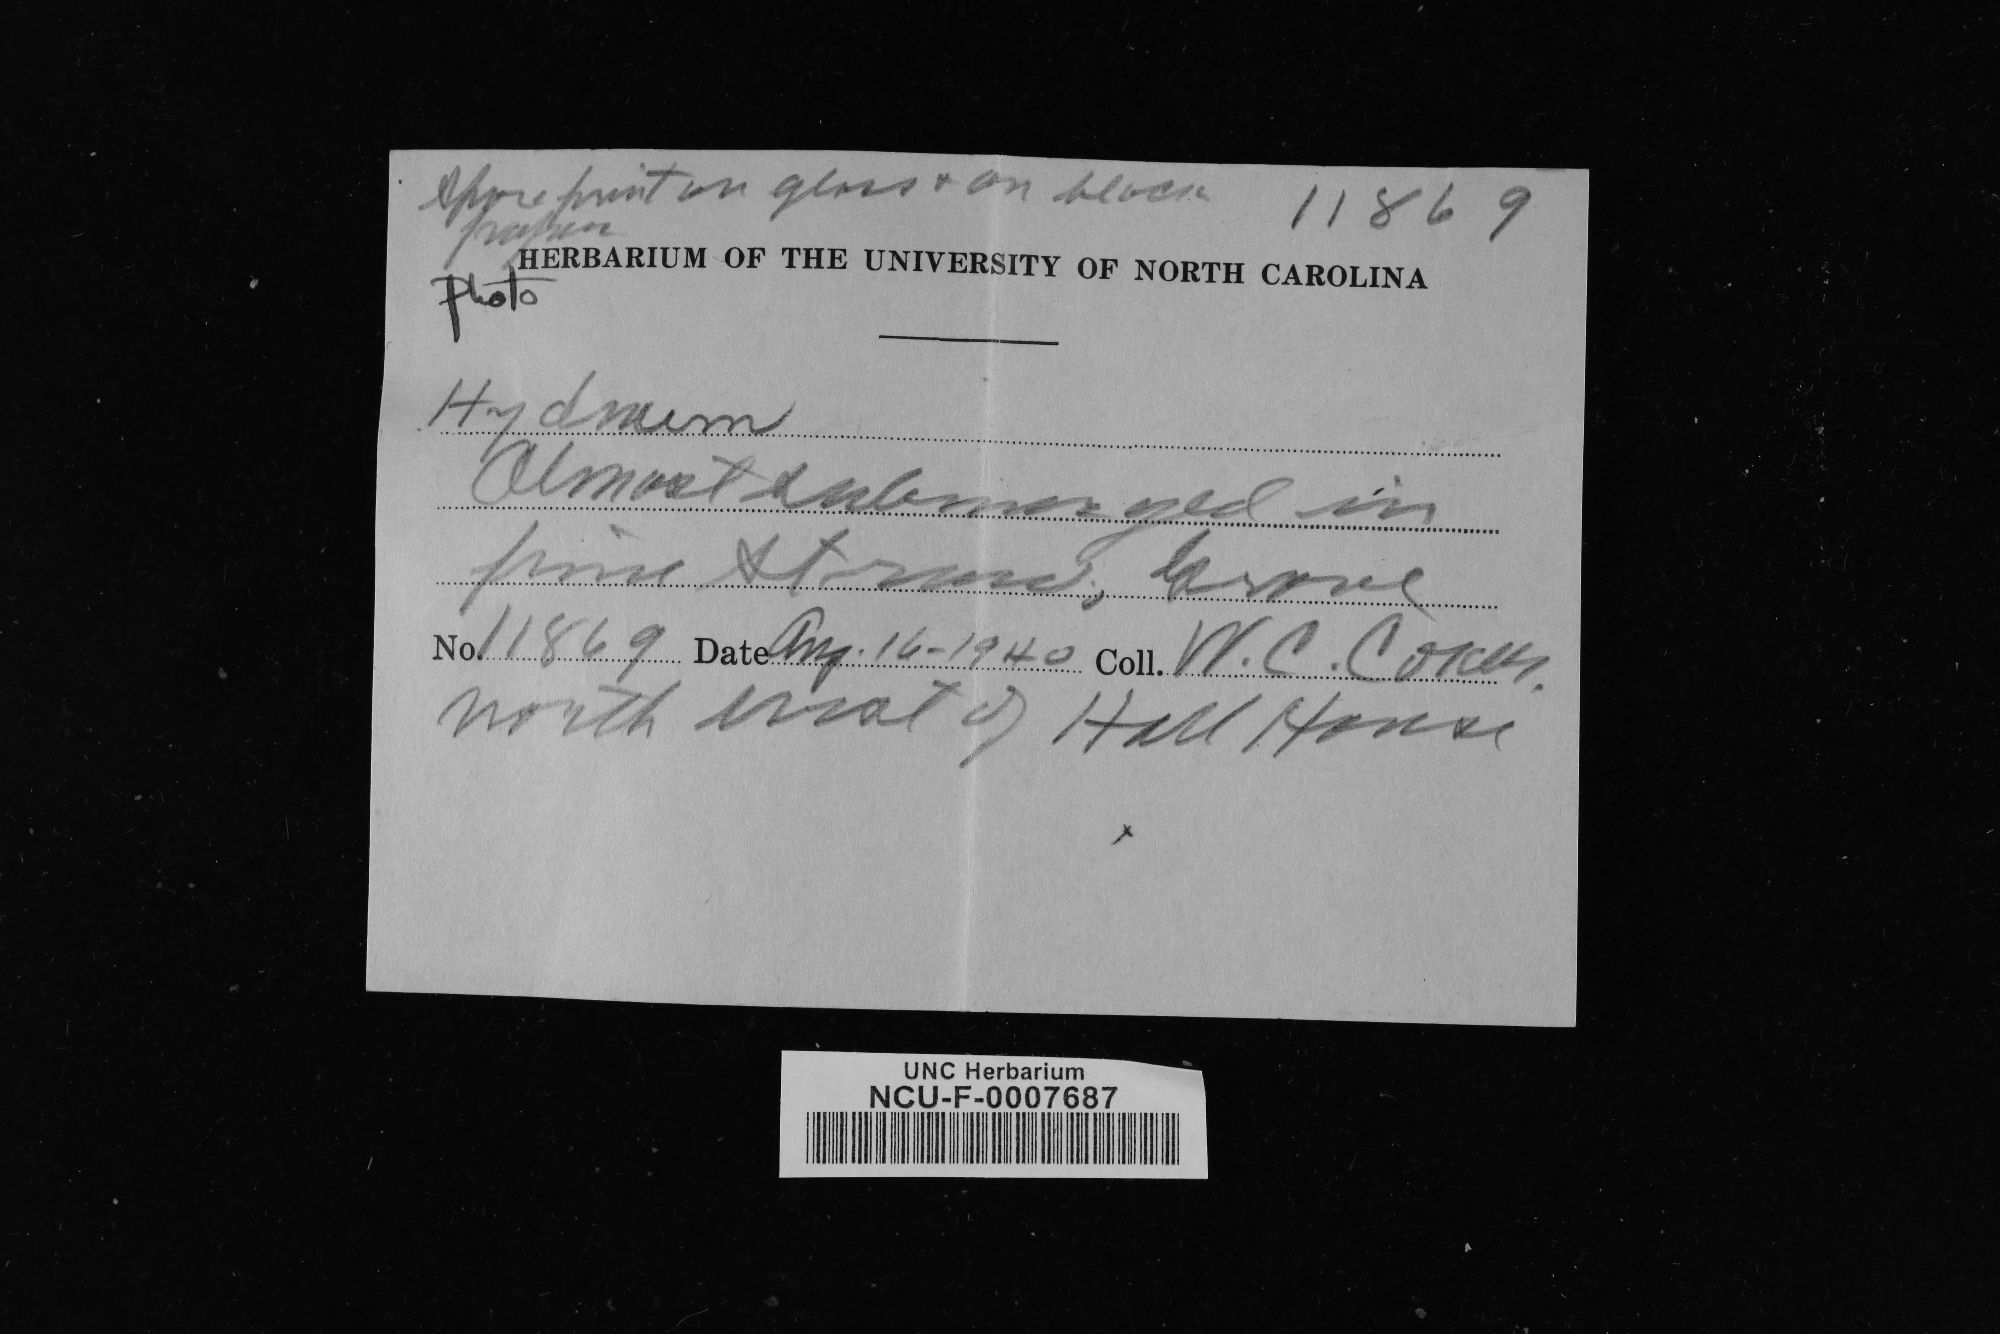 Spore print on glass & on black 11869
paper
HERBARIUM OF THE UNIVERSITY OF NORTH CAROLINA
Photo
Hydnum
Almost submerged in
pine straw, Grove
No. 11869 Date Aug. 16-1940 Coll. W. C. Coker.
north west of Hall House
x
UNC Herbarium
NCU-F-0007687